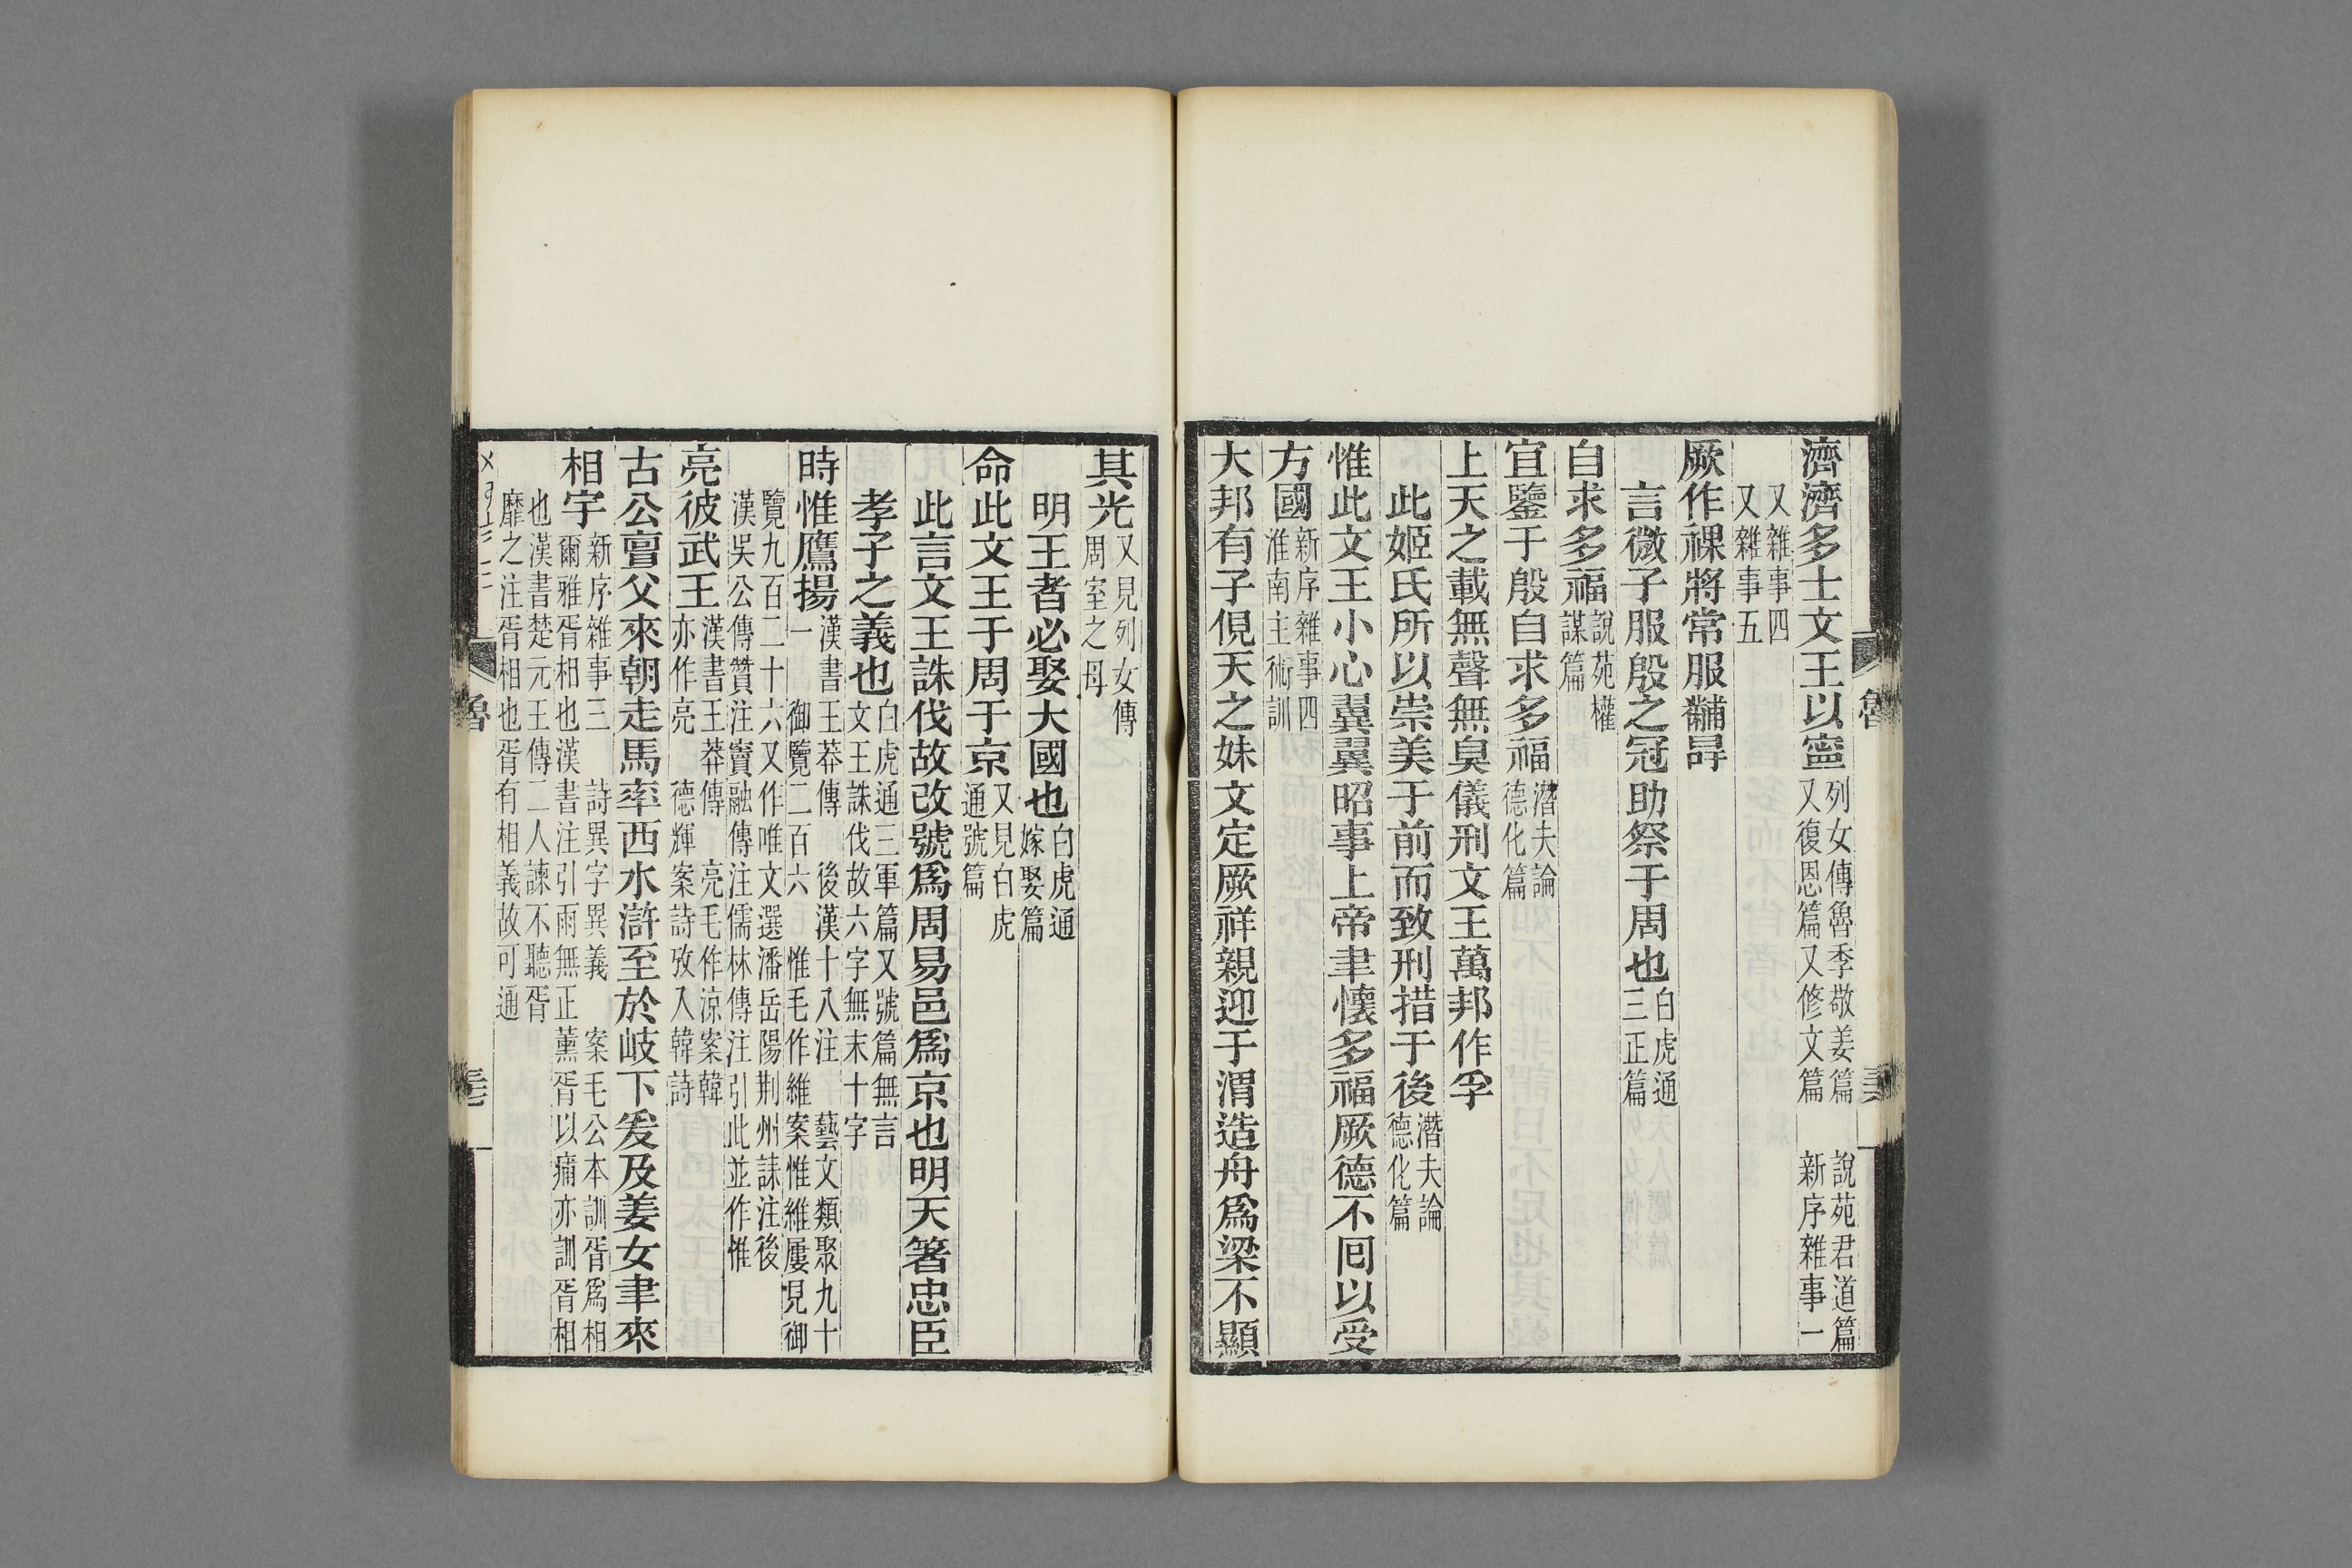 濟濟多士文王以寍列女傳魯季敬姜篇　說苑君道篇
又復恩篇又修文篇　新序雜事一
又雜事四
又雜事五
厥作祼將常服黼冔
言微子服殷之冠助祭于周也白虎通
三正篇
自求多福說苑權
謀篇
宜鑒于殷自求多福潛夫論
德化篇
上天之載無聲無臭儀刑文王萬邦作孚
此姬氏所以崇美于前而致刑措于後潛夫論
德化篇
惟此文王小心翼翼昭事上帝聿懷多福厥德不囘以受
方國新序雜事四
淮南主術訓
大邦有子俔天之妹文定厥祥親迎于渭造舟爲梁不顯
魯
其光又見列女傳
周室之母
明王者必娶大國也白虎通
嫁娶篇
命此文王于周于京又見白虎
通號篇
此言文王誅伐故改號爲周易邑爲京也明天箸忠臣
孝子之義也白虎通三軍篇又號篇無言
文王誅伐故六字無末十字
時惟鷹揚漢書王莽傳　後漢十八注　藝文類聚九十
一　御覽二百六　惟毛作維案惟維屢見御
覽九百二十六又作唯文選潘岳陽荆州誄注後
漢吳公傳贊注竇融傳注儒林傳注引此並作惟
亮彼武王漢書王莽傳　亮毛作涼案韓
亦作亮　德輝案詩攷入韓詩
古公亶父來朝走馬率西水滸至於岐下爰及姜女聿來
相宇新序雜事三　詩異字異義　案毛公本訓胥爲相
爾雅胥相也漢書注引雨無正薰胥以痛亦訓胥相
也漢書楚元王傳二人諫不聽胥
靡之注胥相也胥有相義故可通
魯